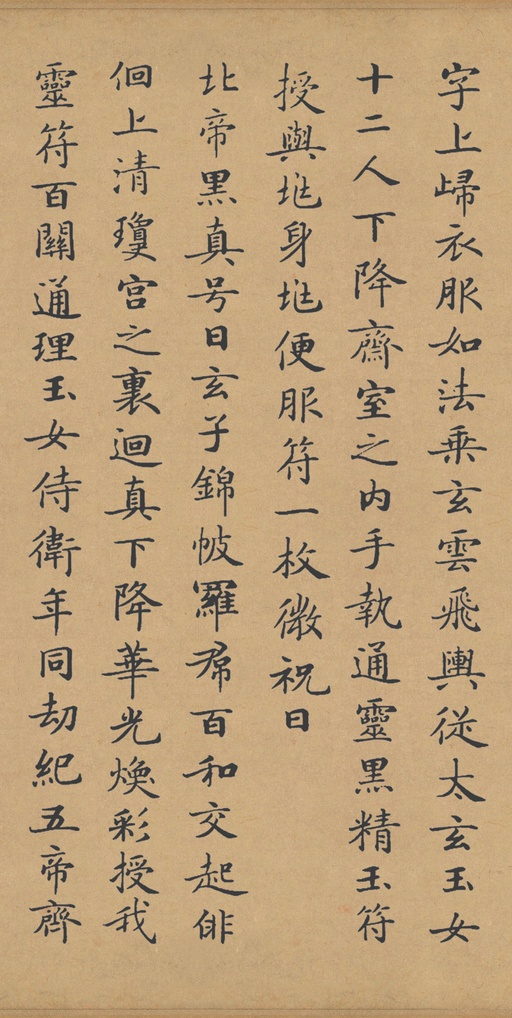 字上歸衣服如法乘玄雲飛輿從太玄玉女
十二人下降齋室之内手執通靈黑精玉符
授與兆身兆便服符一枚微祝曰
北帝黑真号曰玄子錦帔羅帬百和交起俳
佪上清瓊宫之裏迴真下降華光煥彩授我
靈符百關通理玉女侍衛年同劫紀五帝齊